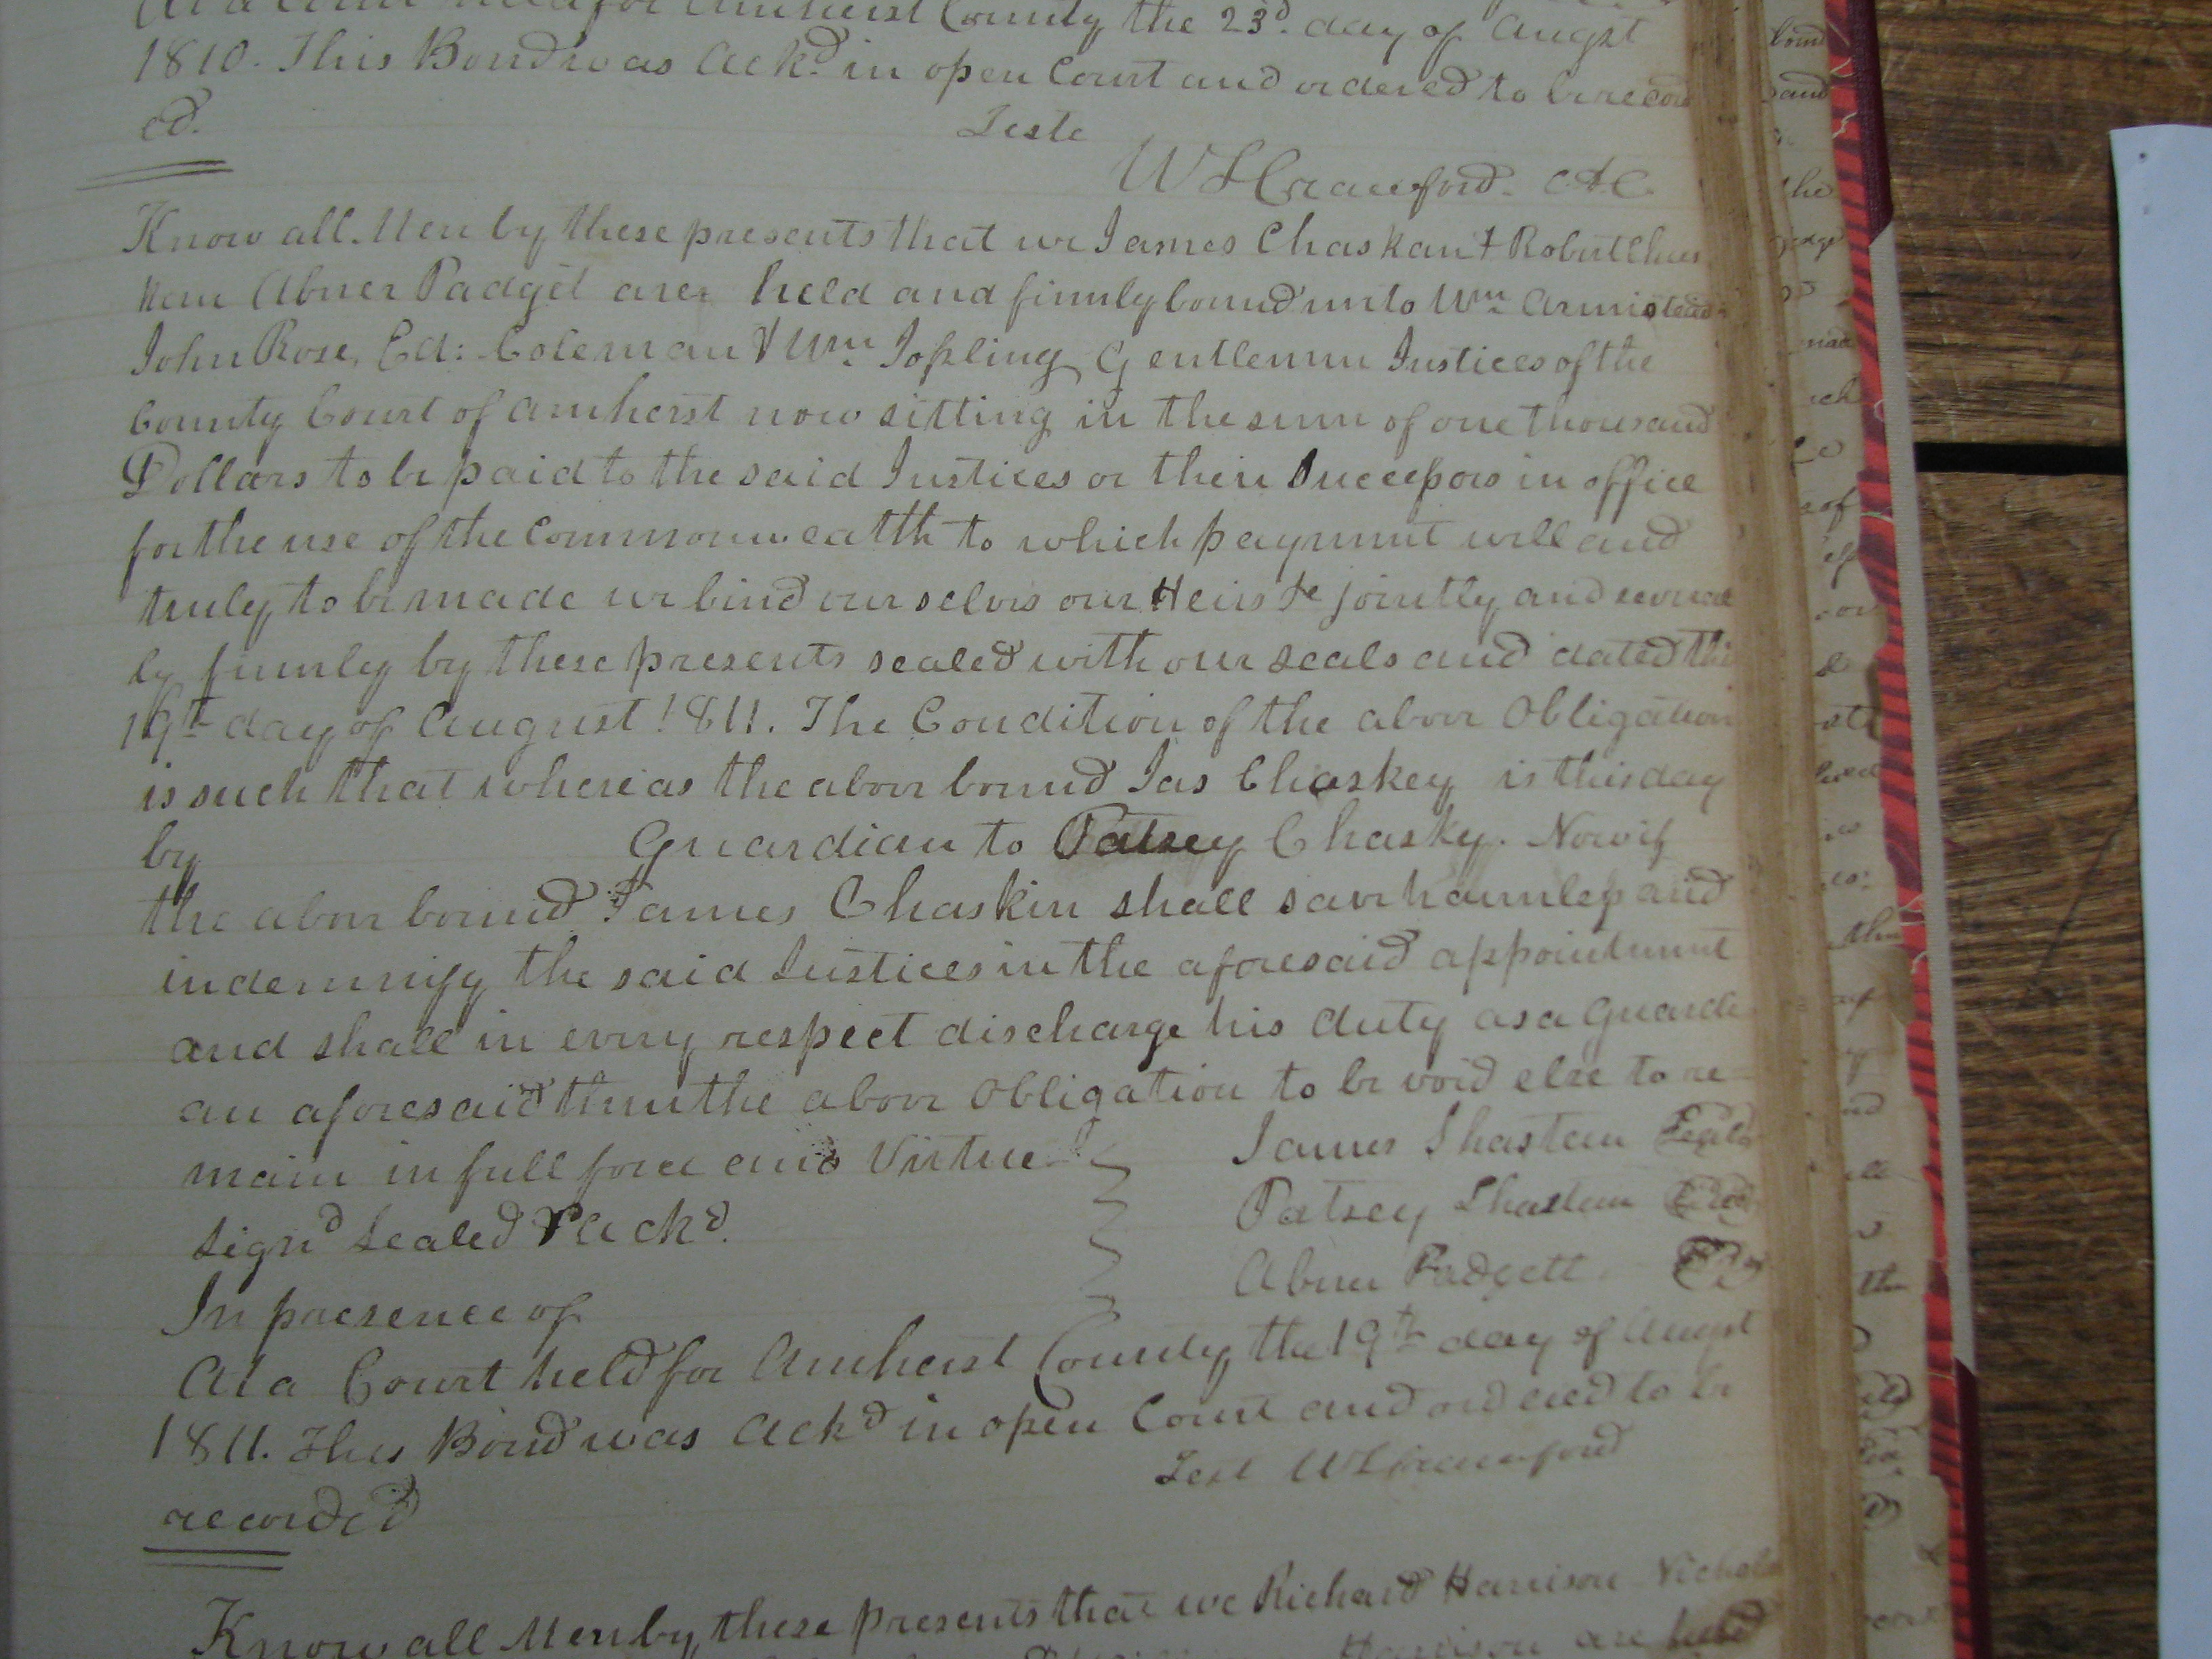 At a Court held for Amherst County the 23d. day of Augst
1810. This Bond was Ackd. in open Court and ordered to be record
ed.
Teste
W S Crawford. CAC
Know all Men by these presents that we James Chaskan & Robert Chas
kan Abner Padget are held and firmly bound unto Wm Armistead
John Rose, Ed: Coleman & Wm Jopling Gentlemen Justices of the
County Court of Amherst now sitting in the sum of one thousand
Dollars to be paid to the said Justices or their Successors in office
for the use of the Commonwealth to which payment well and
truly to be made we bind our selves our Heirs &c jointly and several
ly firmly by these presents sealed with our seals and dated this
19th day of August 1811. The Condition of the above Obligation
is such that whereas the above bound Jas Chaskey is this day
by Guardian to Patsey Chasky. Now if
the above bound James Chaskin shall save harmless and
indemnify the said Justices in the aforesaid appointment
and shall in every respect discharge his duty as a Guardi
an aforesaid then the above Obligation to be void else to re-
main in full force and Virtue
James Shasteen Seal
Signd Sealed & Ackd.
Patsey Shasteen Seal
Abner Padgett
In presence of
At a Court held for Amherst County the 19th day of Augst
1811. This Bond was Ackd in open Court and ordered to be
recorded
Test W S Crawford
Know all Men by these presents that we Richard Harrison Nichols
Harrison are held